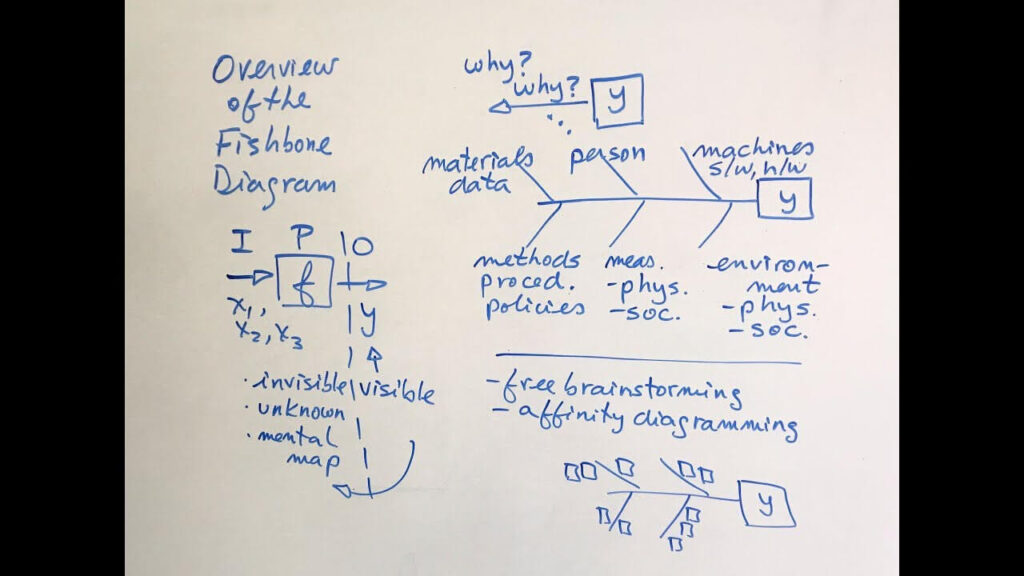 Overview
of the
Fishbone
Diagram
I P O
f
x1,
x2, x3
y
· invisible visible
· unknown
· mental
map
why?
why?
y
materials
data
person
machines
s/w, h/w
y
methods
proced.
policies
meas.
- phys.
- soc.
environ-
ment
- phys.
- soc.
- free brainstorming
- affinity diagramming
y